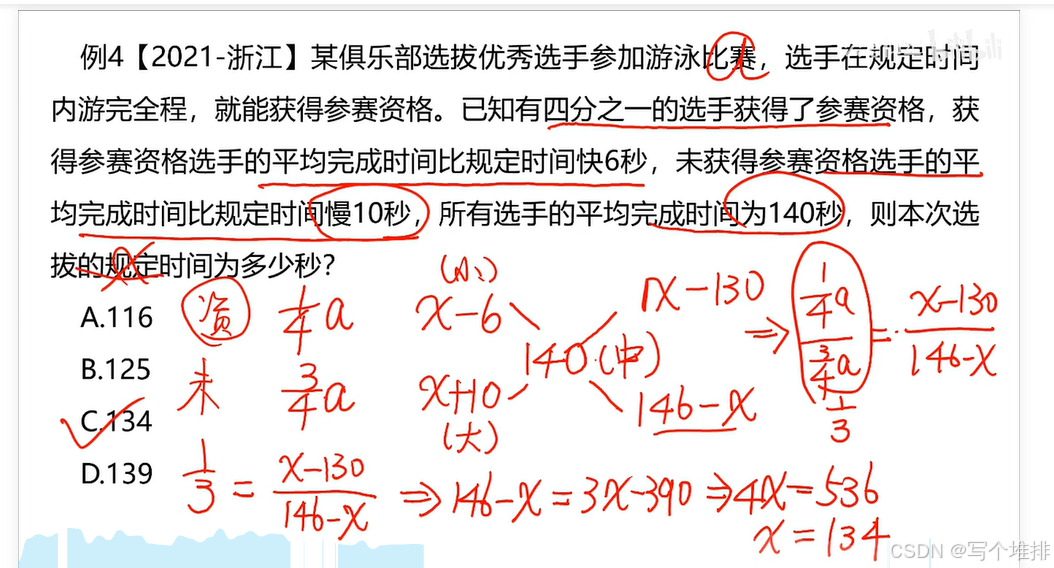 例4【2021-浙江】某俱乐部选拔优秀选手参加游泳比赛，选手在规定时间
a
内游完全程，就能获得参赛资格。已知有四分之一的选手获得了参赛资格，获
得参赛资格选手的平均完成时间比规定时间快6秒，未获得参赛资格选手的平
均完成时间比规定时间慢10秒，所有选手的平均完成时间为140秒，则本次选
拔的规定时间为多少秒？
x
A.116
B.125
C.134
D.139
资 1/4 a x-6 (小)
未 3/4 a x+10 (大)
140 (中)
x-130
146-x
⇒ 1/4 a / 3/4 a = x-130 / 146-x
1/3
1/3 = x-130 / 146-x ⇒ 146-x = 3x-390 ⇒ 4x=536
x=134
CSDN @写个堆排